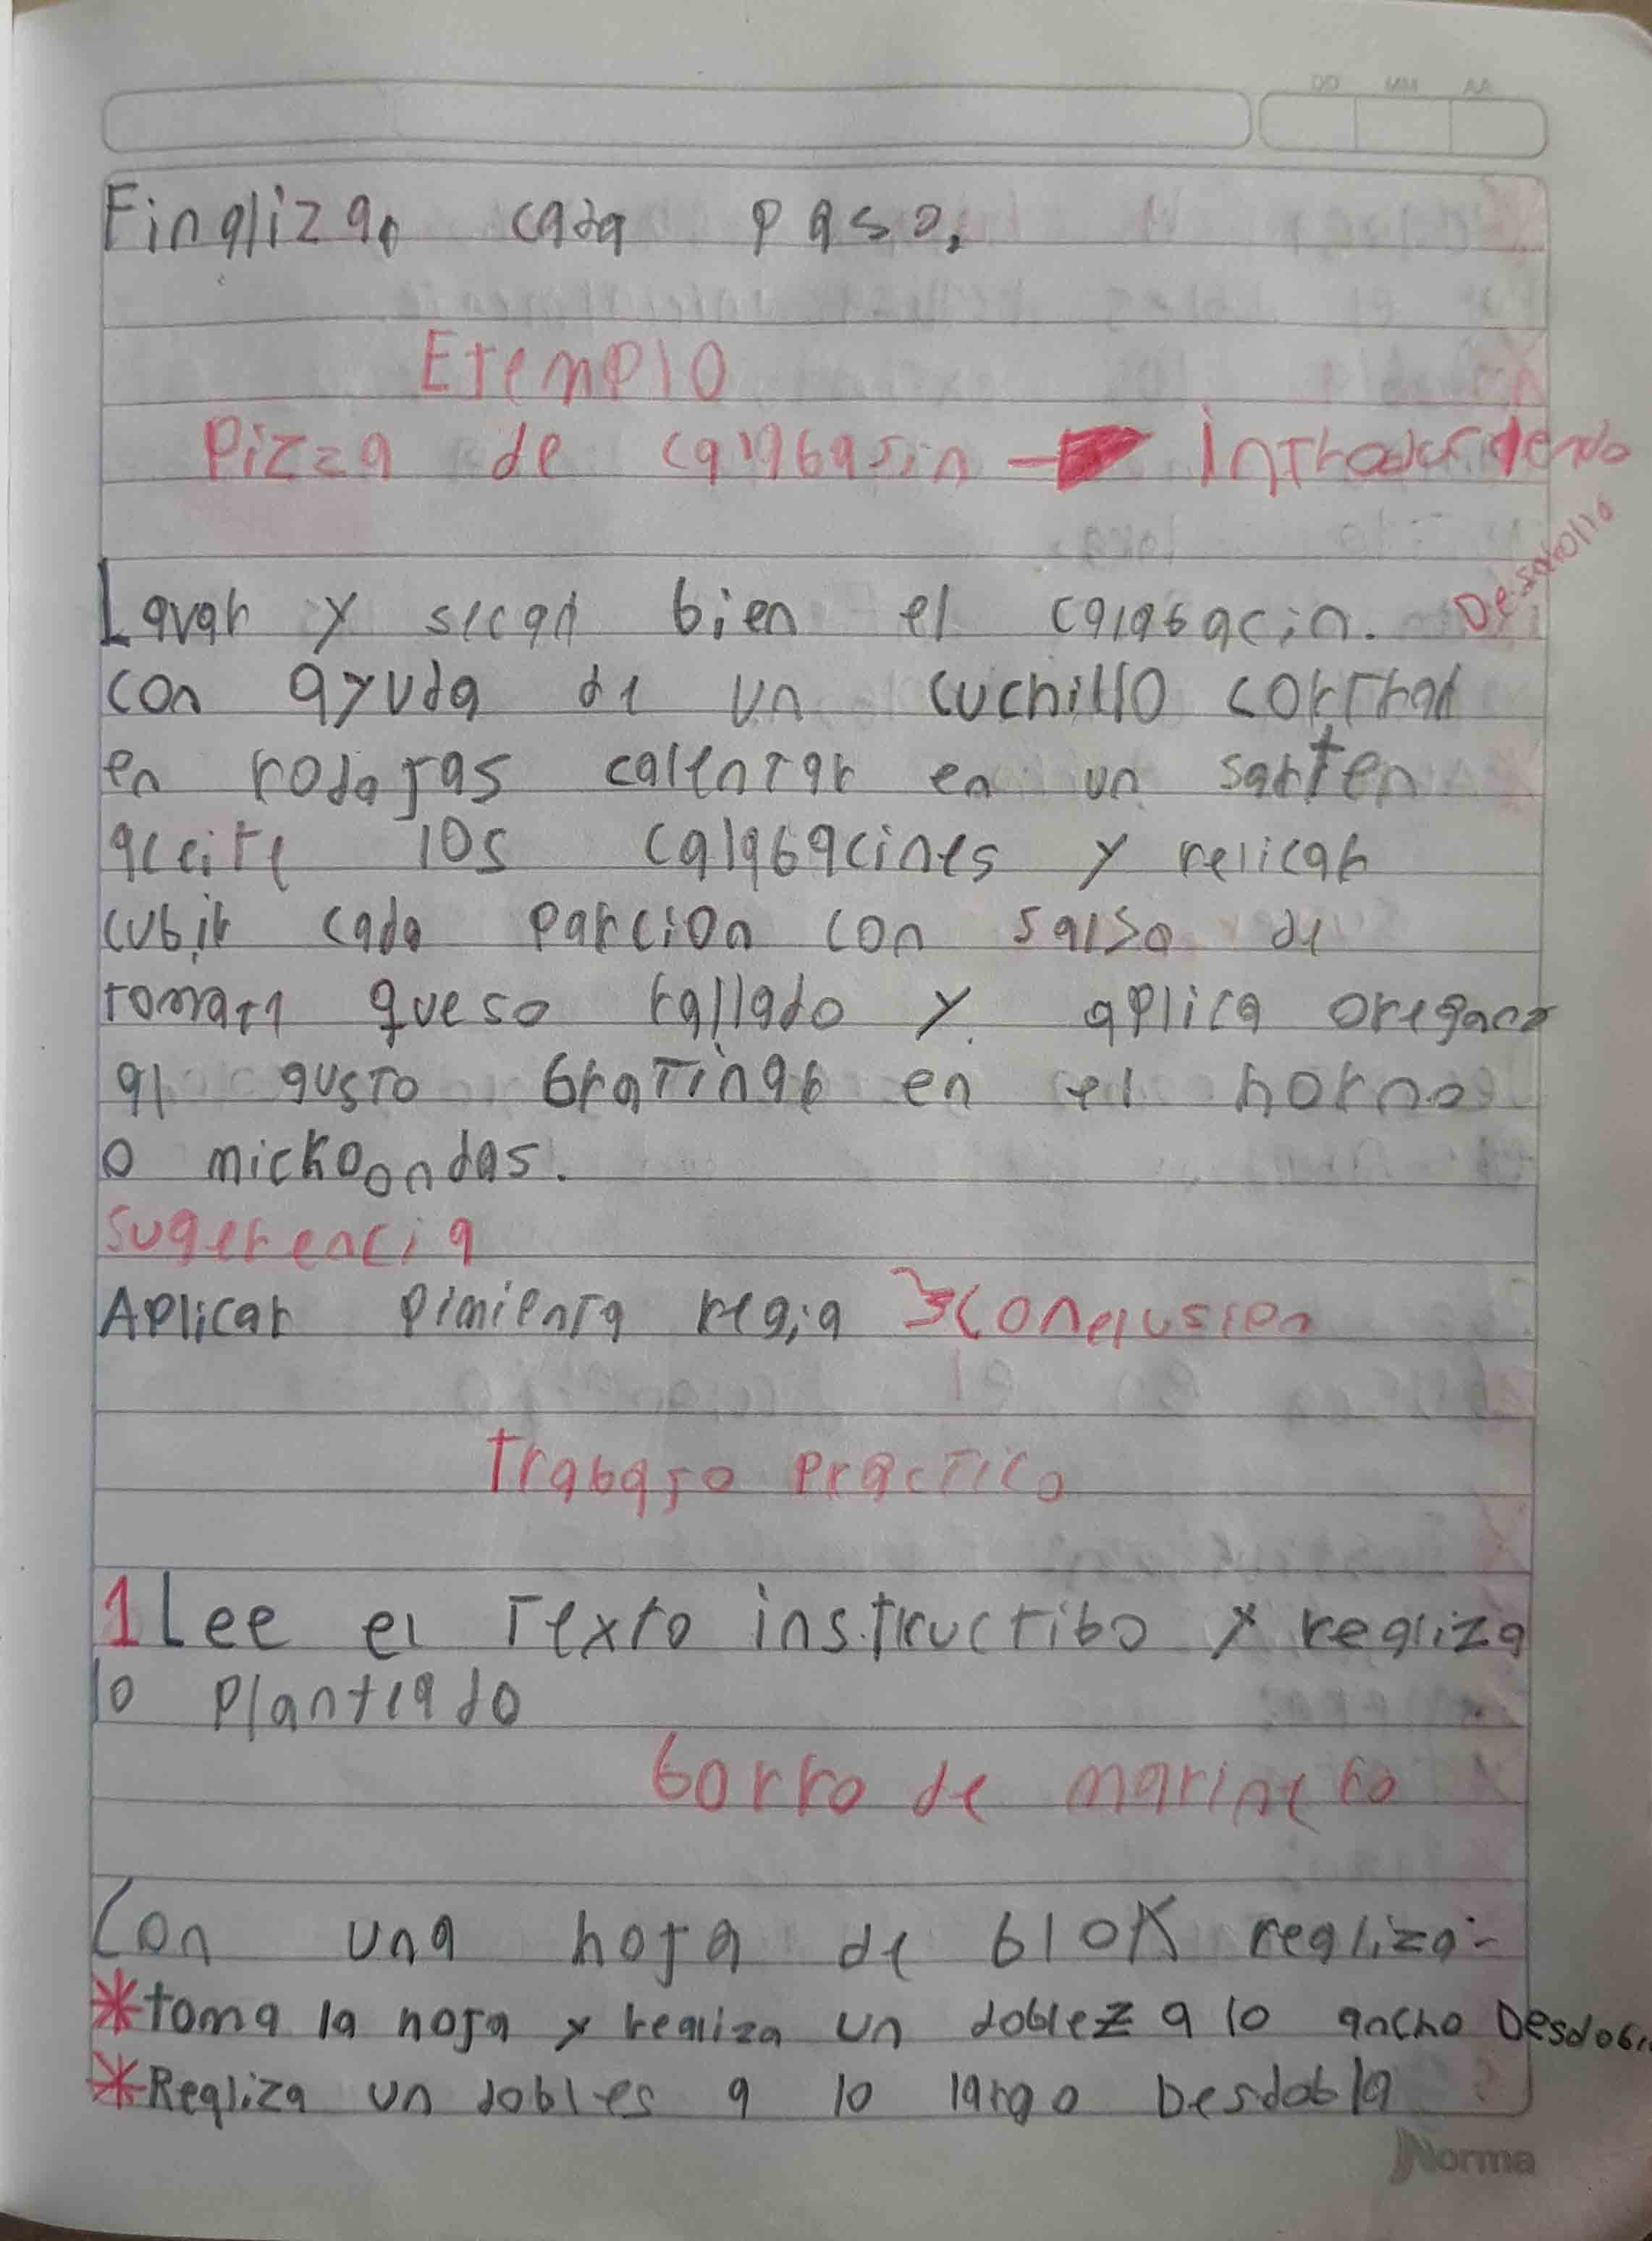 DD MM AA
Finalizar cada paso.
Ejemplo
Pizza de calabasin → introducsiendo
Desarollo
Lavar y secar bien el calabacin.
con ayuda de un cuchillo cortrar
en rodajas calentar en un sarten
aceite los calabacines y relicar
cubir cada parcion con salsa de
tomate queso rallado y aplica oregano
al gusto Gratinar en el horno
o mickoondas.
sugerencia
Aplicar pimienta regia conclusion
Trabajo practico
1 Lee el Texto instructibo y realiza
lo plantiado
Gorro de marinero
Con una hoja de blok realiza:
*toma la hoja y realiza un doblez a lo ancho
*Realiza un dobles a lo largo Desdobla
Norma